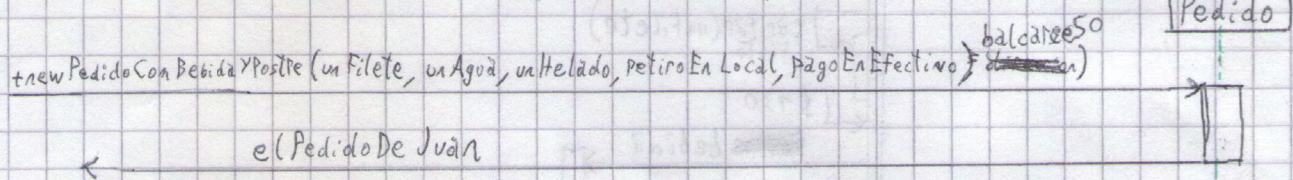 Pedido
balcarce50
+new PedidoConBebidaYPostre (unFilete, unAgua, unHelado, retiroEnLocal, pagoEnEfectivo, )
elPedidoDeJuan